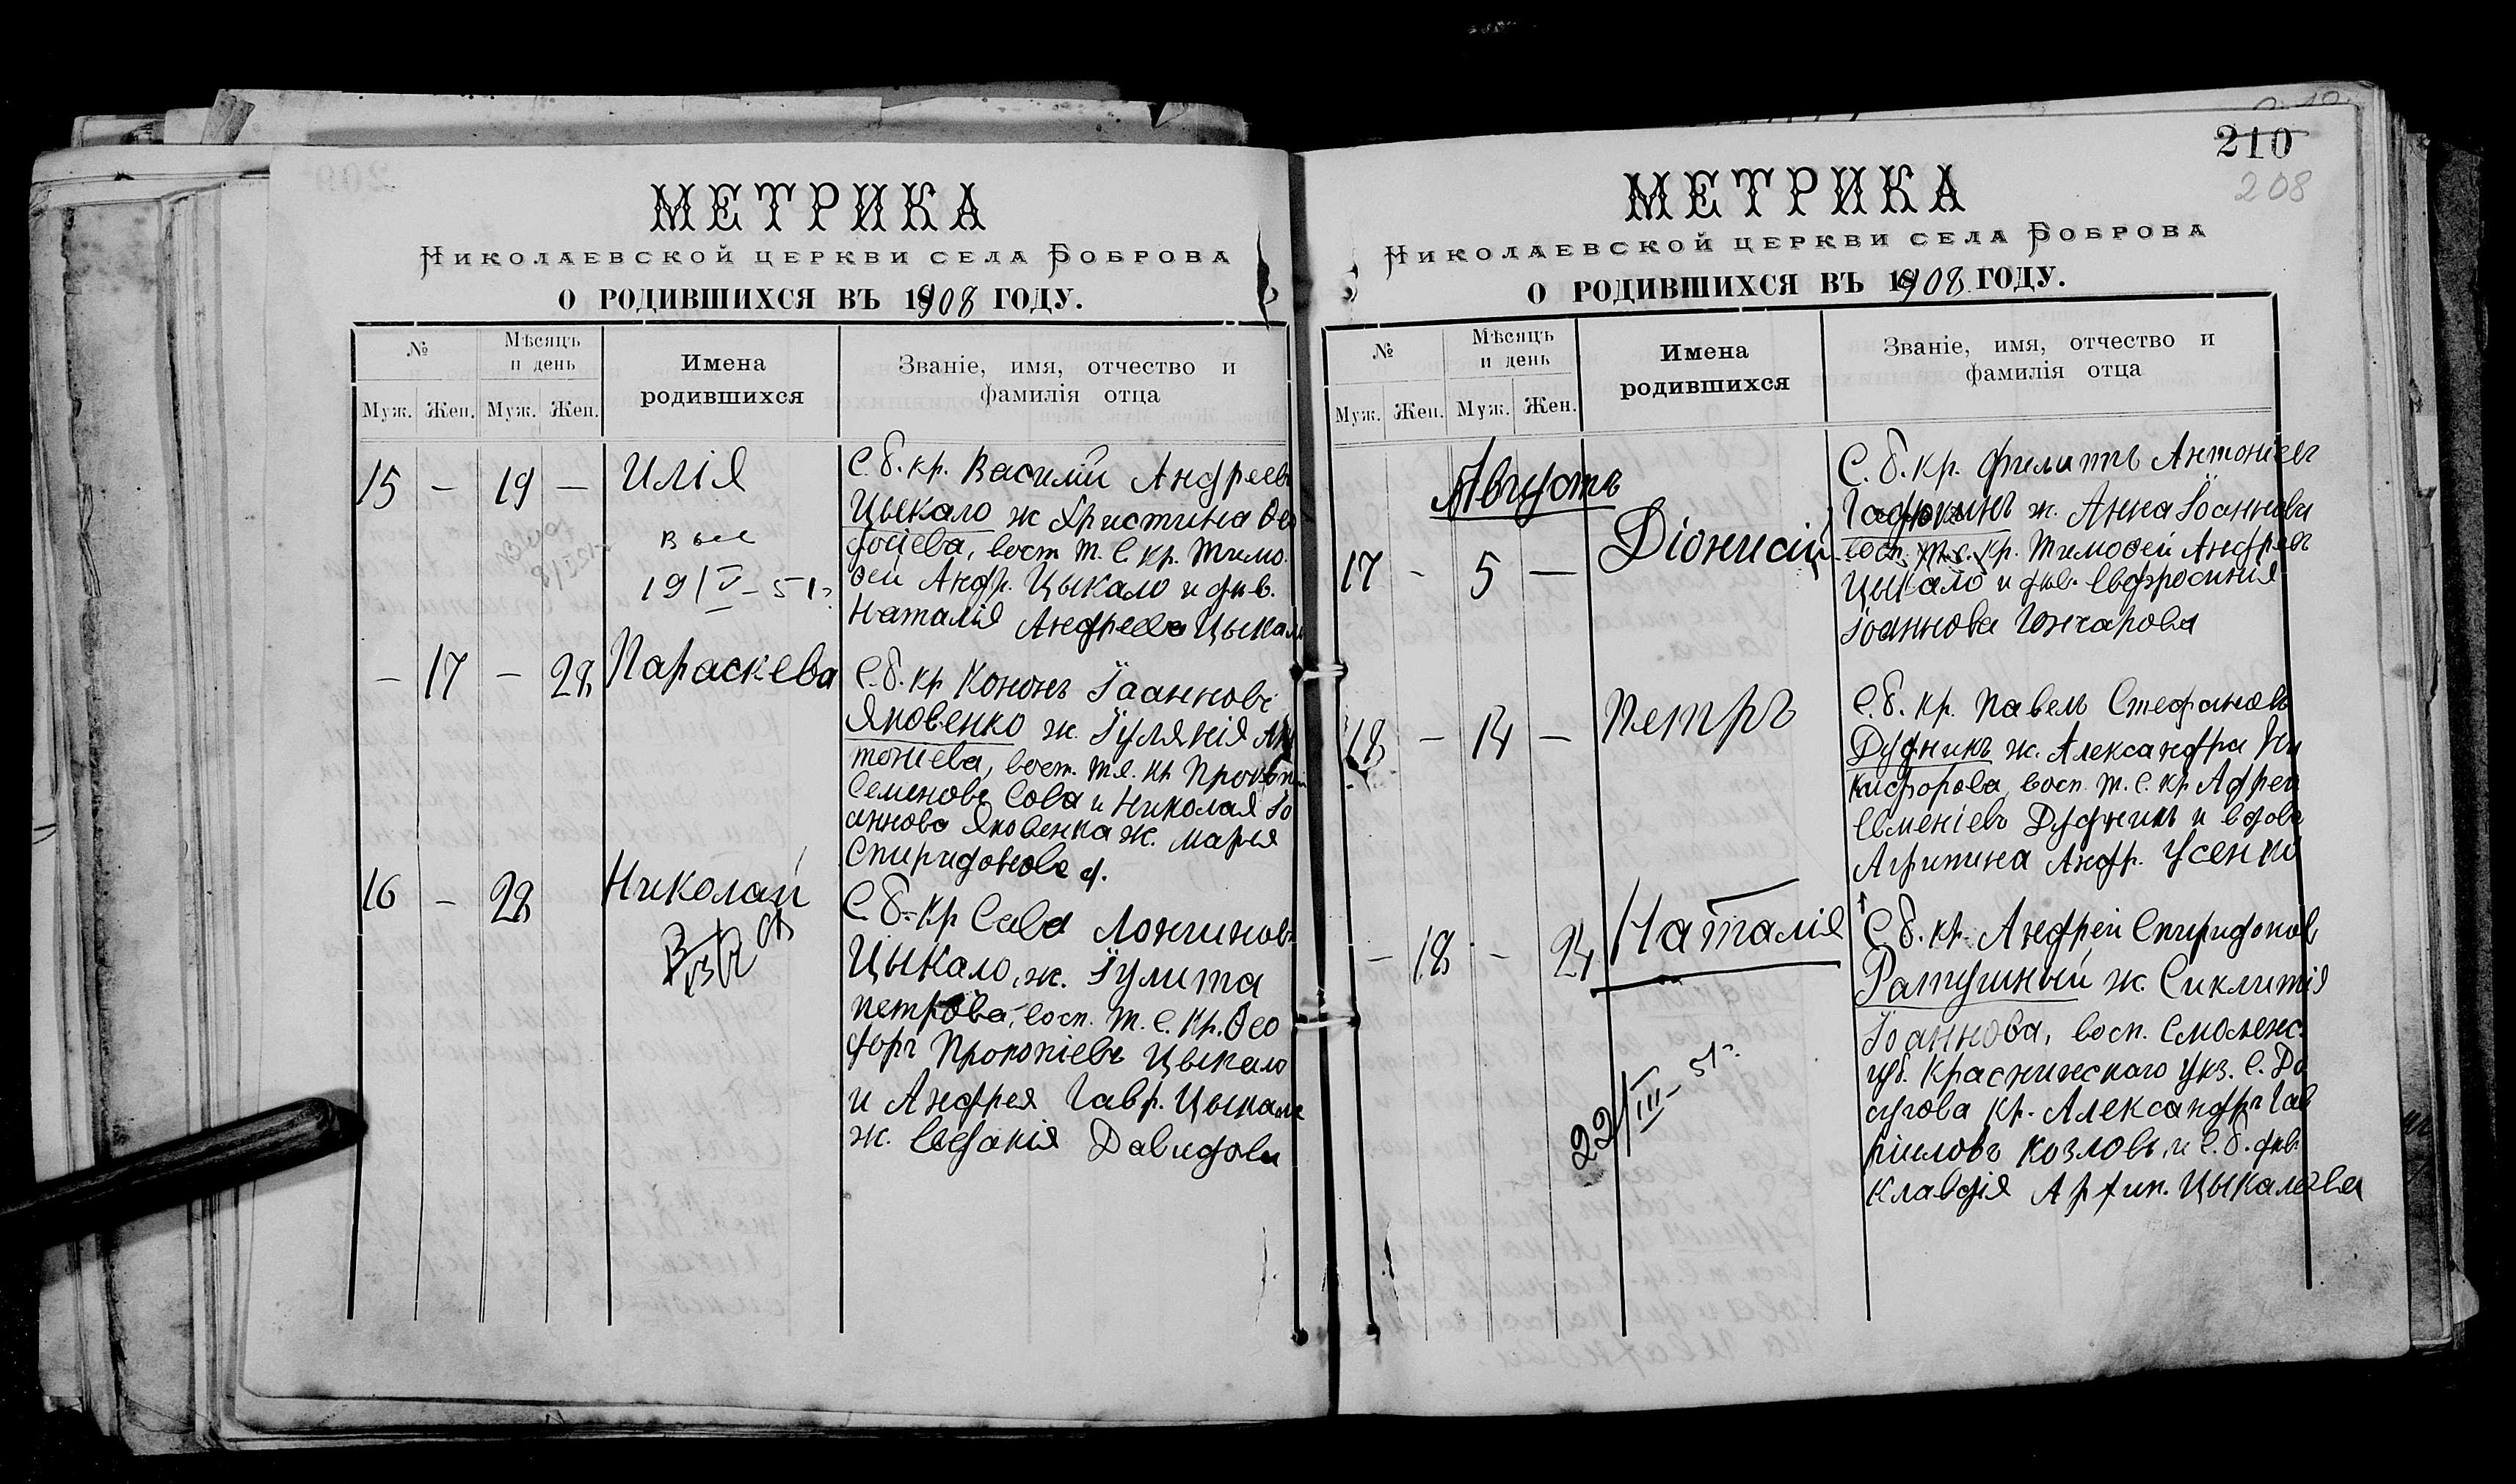 МЕТРИКА
НИКОЛАЕВСКОЙ ЦЕРКВИ СЕЛА БОБРОВА
О РОДИВШИХСЯ ВЪ 1908 ГОДУ.
№
Мѣсяцъ и день
Имена родившихся
Званіе, имя, отчество и фамилія отца
Муж. Жен. Муж. Жен.
15 — 19 — Илія
С. б. кр. Василій Андреевъ
Цыкало ж Христина Ѳео
досіева, восп т. с. кр. Тимо
ѳей Андр. Цыкало и дѣв.
Наталія Андреева Цыкало
в ые
19/V-51г
— 17 — 28 Параскева
С. б. кр Кононъ Іоанновъ
Яковенко ж. Іулянія Ан
тоніева, восп. т. с. кр Прокопій
Семеновъ Сова и Николая Іо
аннова Яковенка ж. Марія
Спиридонова
16 — 28 Николай
С. б. кр Сава Лонгиновъ
Цыкало, ж. Іулита
петрова, восп. т. с. кр. Ѳео
доръ Прокопіевъ Цыкало
и Андрея Гавр. Цыкало
ж. Евдокія Давидова
210
208
МЕТРИКА
НИКОЛАЕВСКОЙ ЦЕРКВИ СЕЛА БОБРОВА
О РОДИВШИХСЯ ВЪ 1908 ГОДУ.
№
Мѣсяцъ и день
Имена родившихся
Званіе, имя, отчество и фамилія отца
Муж. Жен. Муж. Жен.
Августъ
17 - 5 — Діонисій
С. б. кр. Филиппъ Антоніевъ
ж. Анна Іоаннова
восп. т. с. кр. Тимоѳей Андреевъ
Цыкало и дѣв. Евфросинія
Іоаннова Гончарова
18 — 14 — Петръ
С. б. кр. Павелъ Стефановъ
Дудникъ ж. Александра Ни
кифорова, восп. т. с. кр Адрей
Евменіевъ Дудникъ и вдова
Агрипина Андр. Усенко
— 18 — 24 Наталія
С. б. кр. Андрей Спиридонов
Ратушный ж. Сиклитія
Іоаннова, восп. Смоленс.
губ. Краснинскаго уѣз. с. До
сугова кр. Александръ Гав
ріиловъ Козловъ, и с. б. дѣв
Клавдія Архип. Цыкалова
22/III-51г.